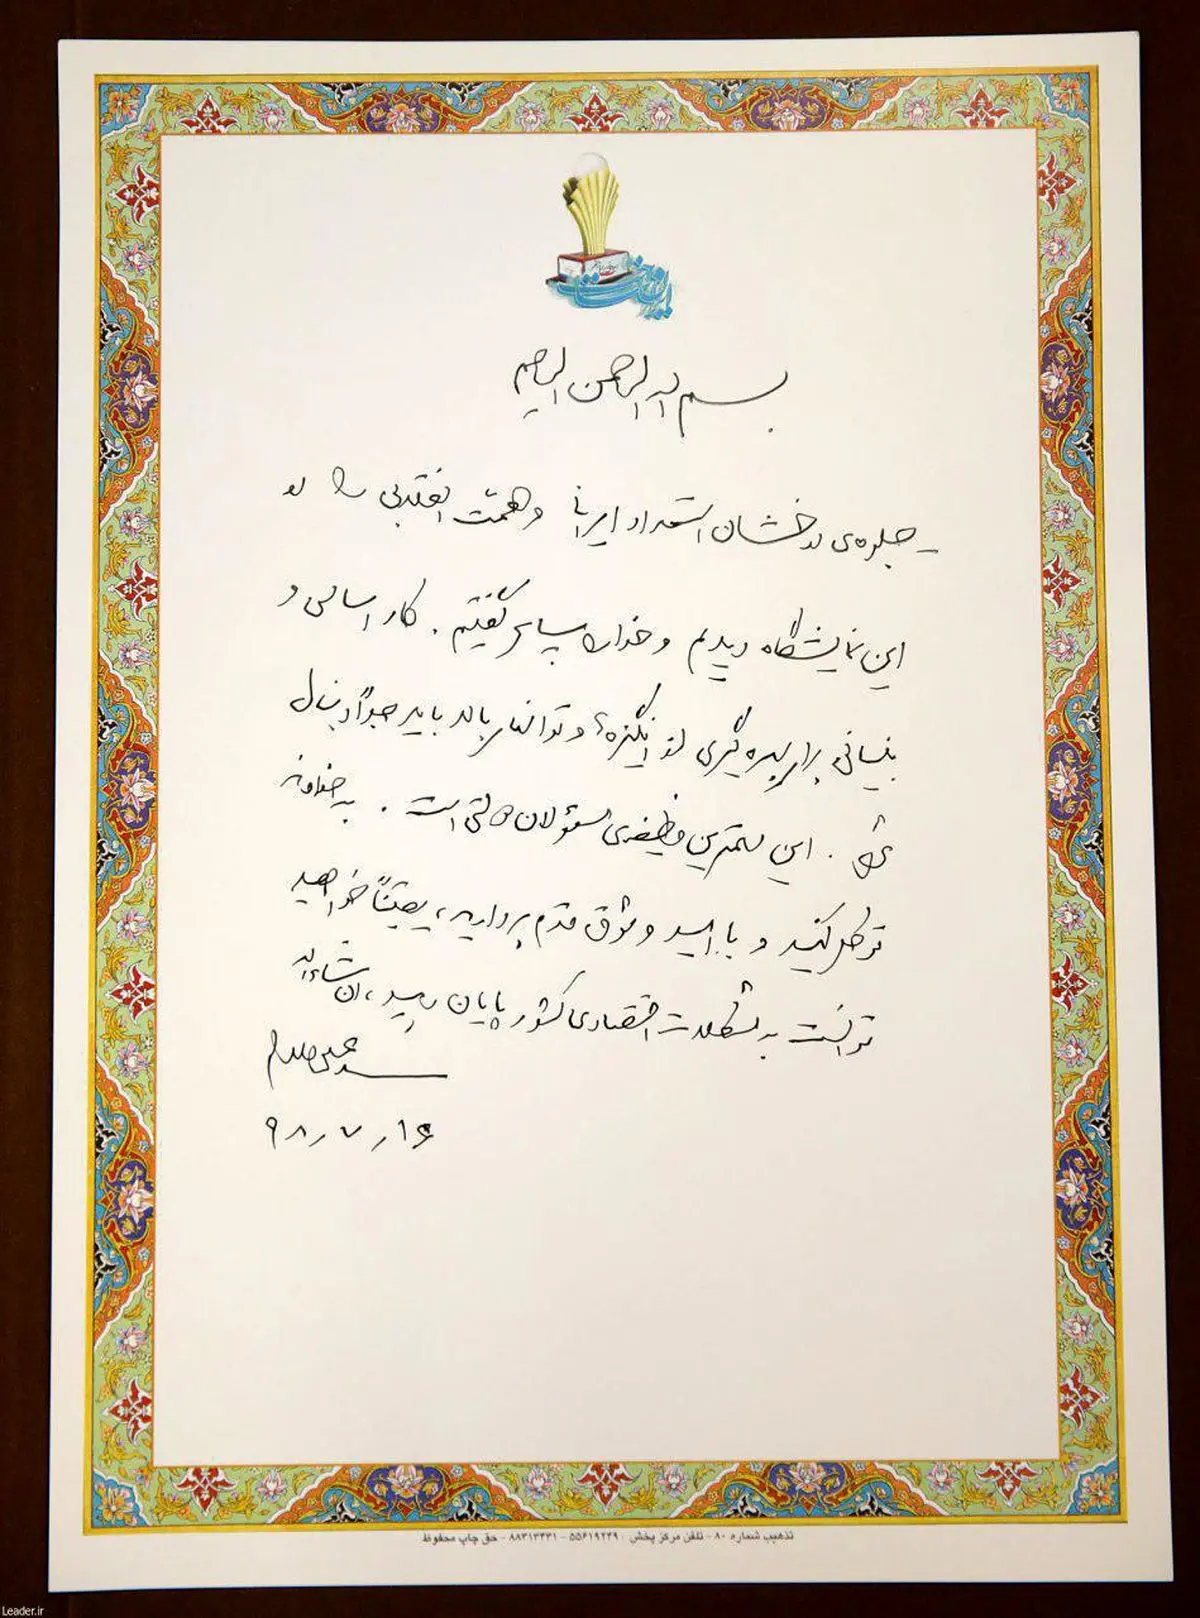 بسم الله الرحمن الرحیم
جلوه‌ی درخشان استعداد ایرانی و همّت انقلابی را در
این نمایشگاه دیدیم و خدا را سپاس گفتیم. کار اساسی و
بنیانی برای بهره‌گیری از انگیزه‌ها و توانها باید جدّاً دنبال
شود. این مهمترین وظیفه‌ی مسؤولان دولتی است. به خداوند
توکل کنید و با امید و شوق قدم بردارید، یقیناً خواهید
توانست به مشکلات اقتصادی کشور پایان دهید، ان شاءالله
سید علی خامنه‌ای
۹۸٫۷٫۱۶
تذهیب شماره ۸۰ - تلفن مرکز پخش : ۵۵۶۱۹۲۳۹ - ۸۸۳۱۳۳۳۱ - حق چاپ محفوظ
Leader.ir